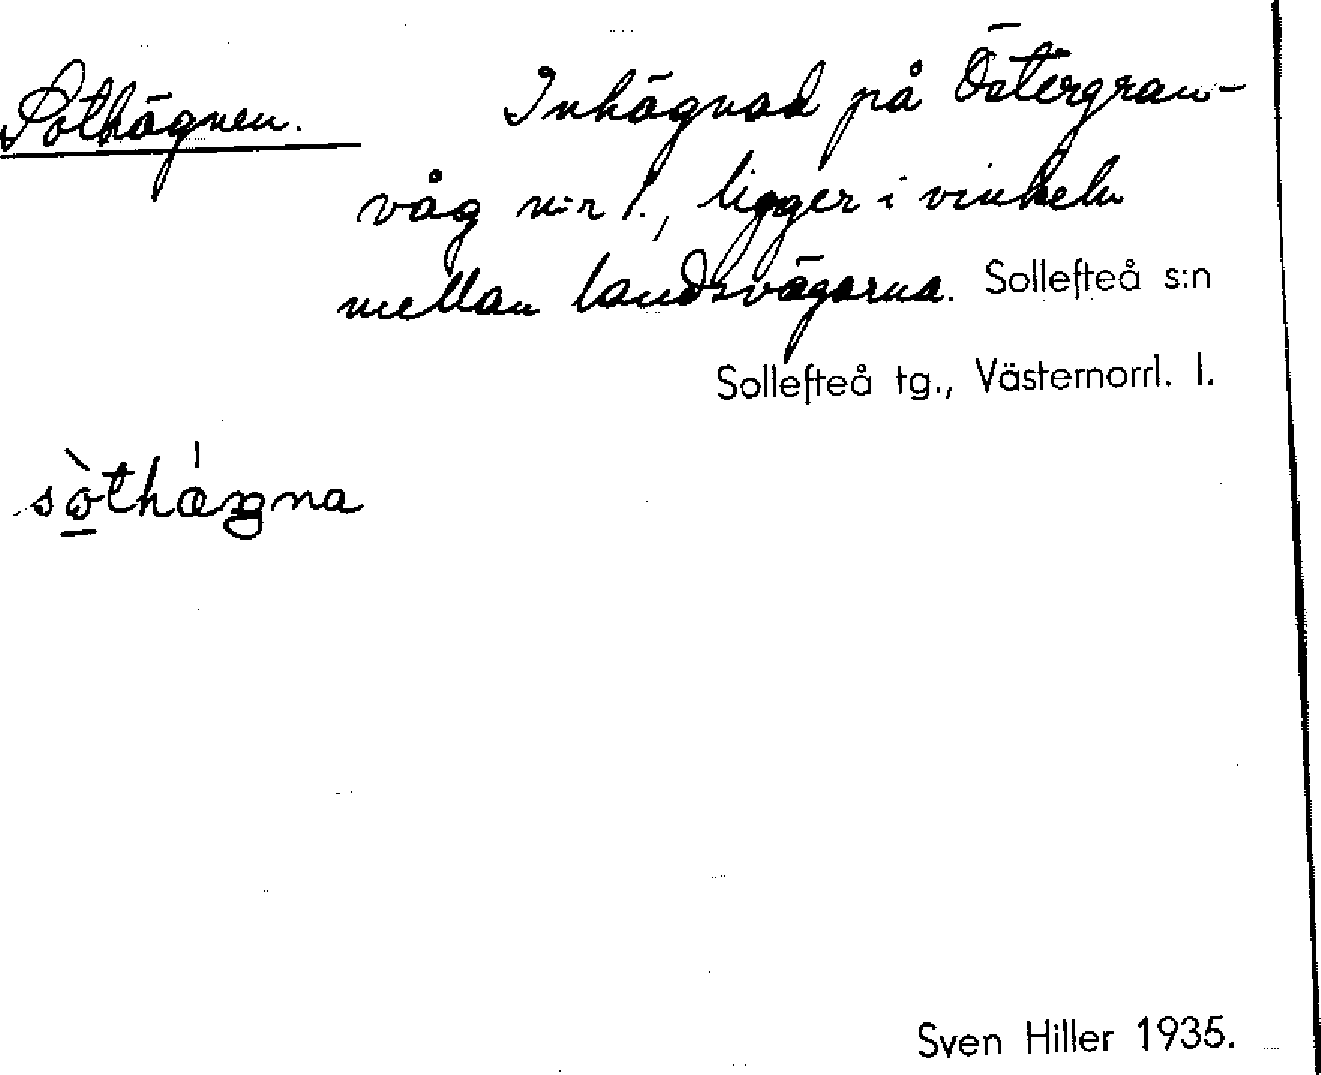 Sothägnen. Inhägnad på Östergran-
våg n:r 1., ligger i vinkeln
mellan landsvägarna. Sollefteå s:n
Sollefteå tg., Västernorrl. l.
sòthægna
Sven Hiller 1935.